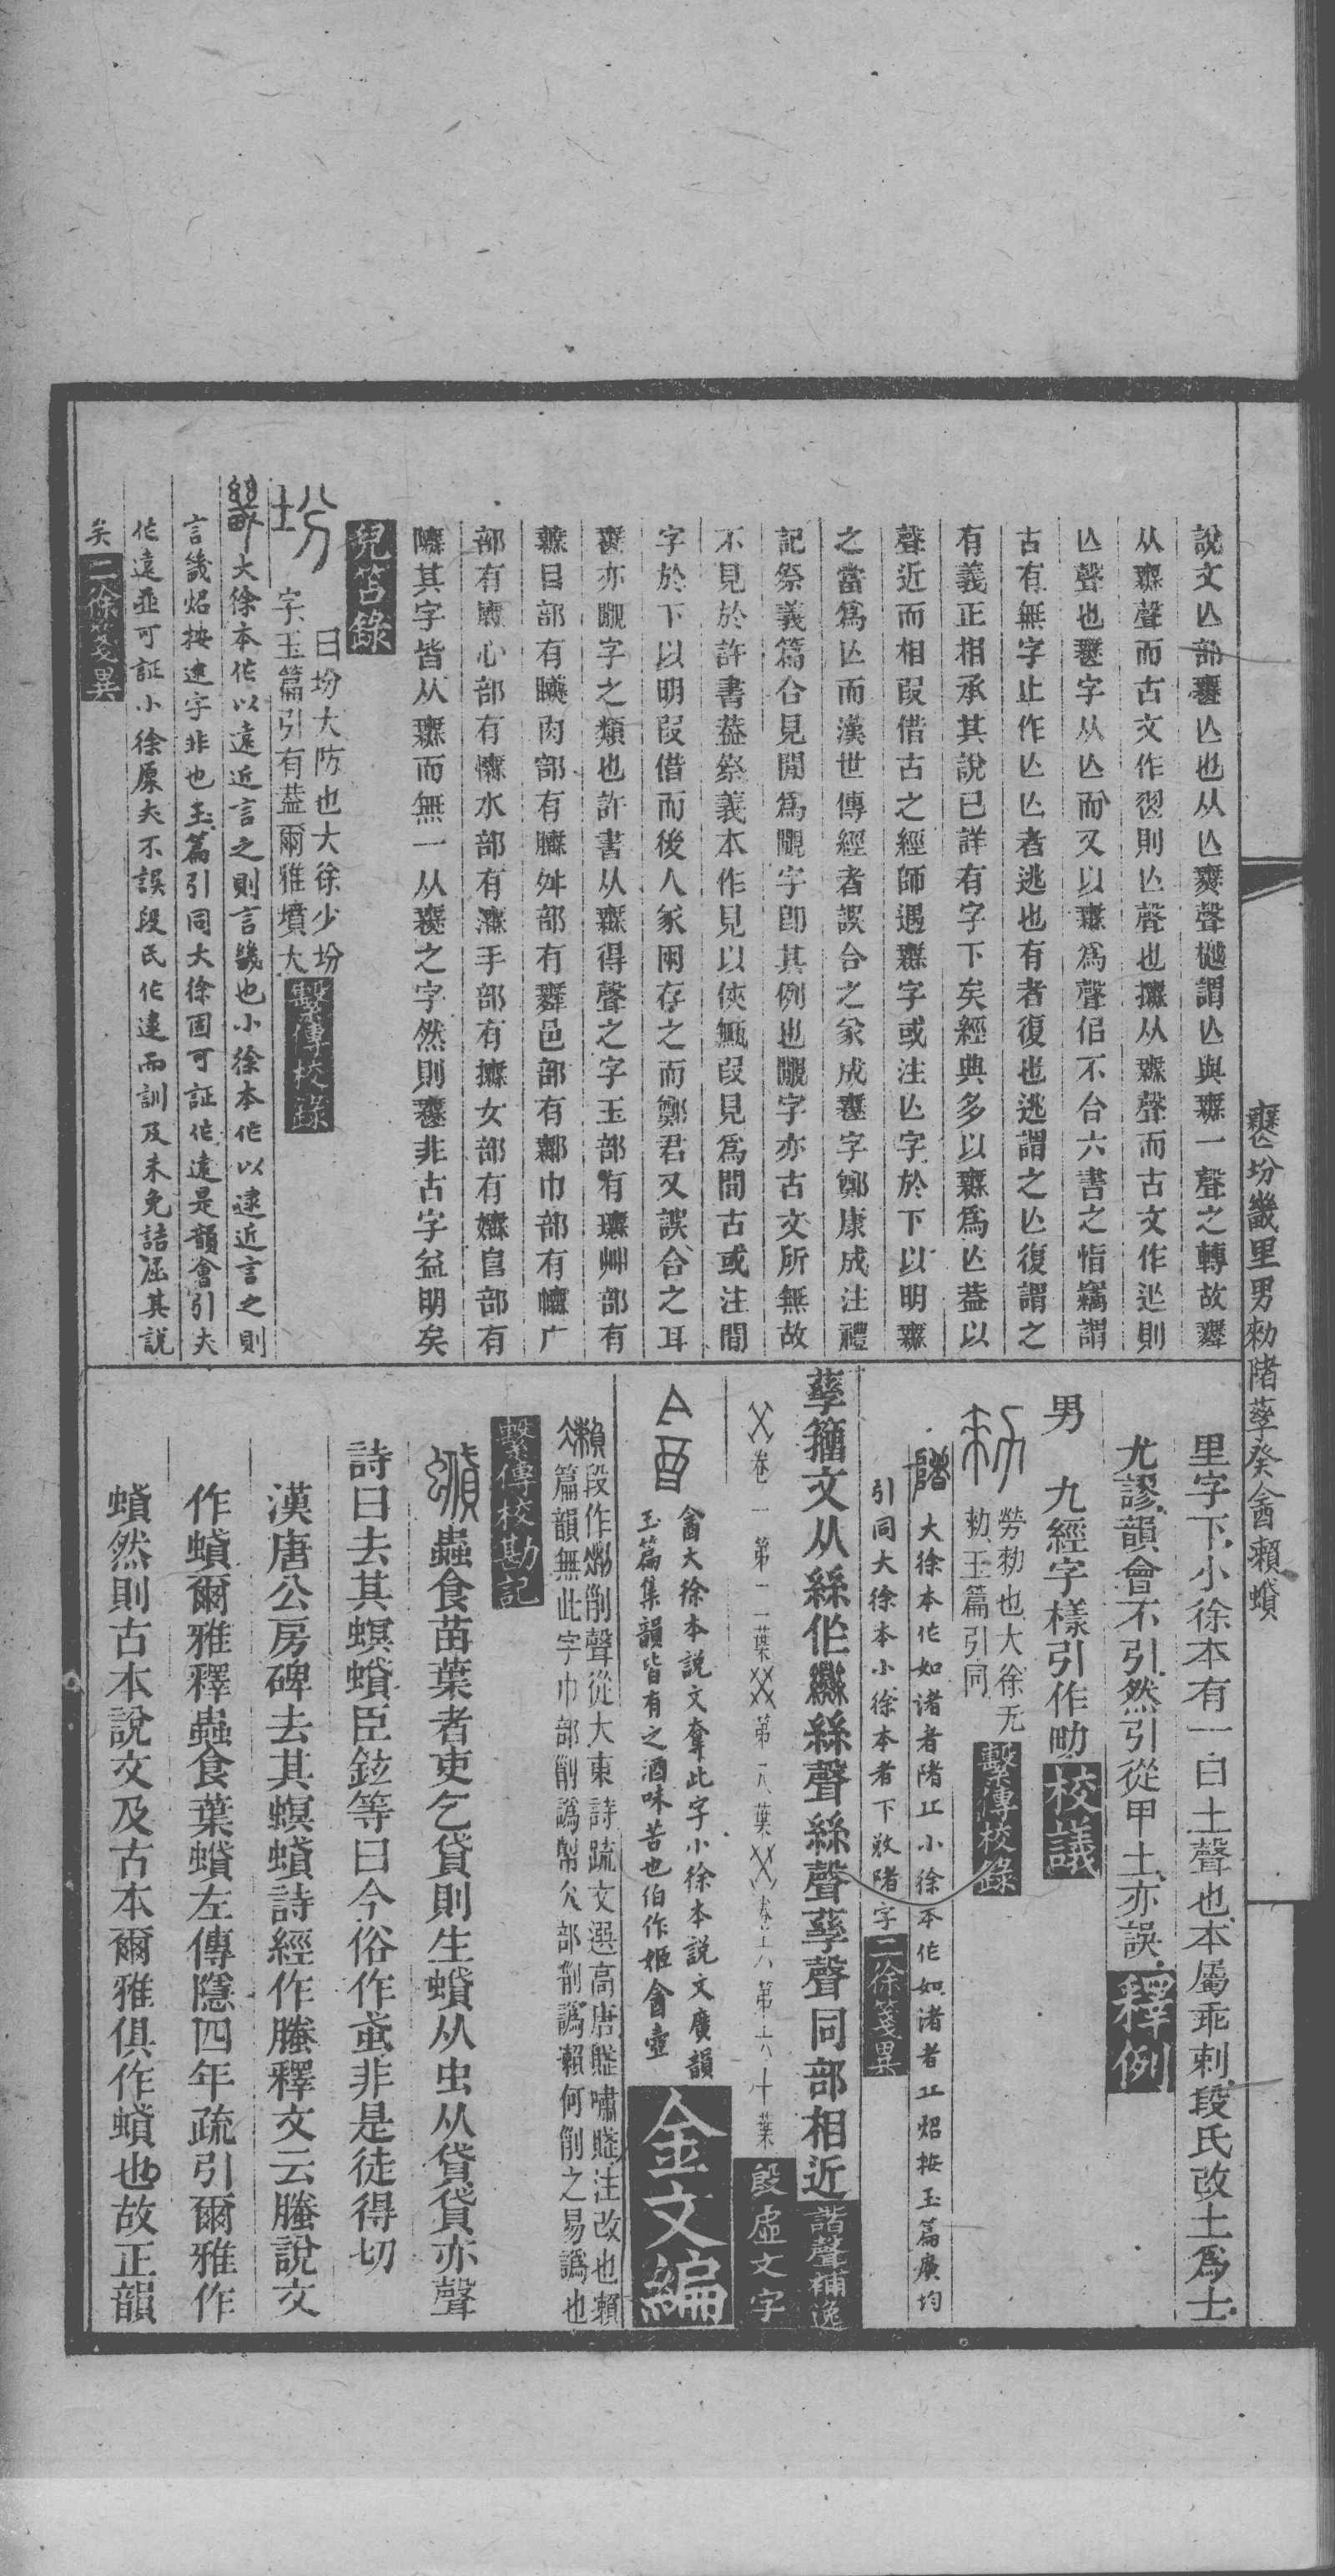 說文亾部𣠮亾也从亾𣞤聲樾謂亾與𣞤一聲之轉故𣠮
从𣞤聲而古文作𡚨則亾聲也撫从𣞤聲而古文作𢓑則
亾聲也𣠮字从亾而又以𣞤爲聲侣不合六書之恉竊謂
古有無字止作亾亾者逃也有者復也逃謂之亾復謂之
有義正相承其說已詳有字下矣經典多以𣞤爲亾葢以
聲近而相叚借古之經師遇𣞤字或注亾字於下以明𣞤
之當爲亾而漢世傳經者誤合之㒸成𣠮字鄭康成注禮
記祭義篇合見閒爲覵字卽其例也覵字亦古文所無故
不見於許書葢祭義本作見以俠甒叚見爲閒古或注閒
字於下以明叚借而後人㒸兩存之而鄭君又誤合之耳
𣠮亦覵字之類也許書从𣞤得聲之字玉部有璑艸部有
蕪目部有瞴肉部有膴舛部有舞邑部有鄦巾部有幠广
部有廡心部有憮水部有潕手部有撫女部有嫵𨸏部有
隵其字皆从𣞤而無一从𣠮之字然則𣠮非古字益明矣
兒笘錄
坋 曰坋大防也大徐少坋
字玉篇引有葢爾雅墳大 繫傳校錄
畿 大徐本作以遠近言之則言畿也小徐本作以逮近言之則
言畿炤按逮字非也玉篇引同大徐固可証作遠是韻會引夫
作遠亟可証小徐原夫不誤段氏作逮而訓及未免詰屈其說
矣 二徐箋異
𣠮坋畿里男勑陼孳癸酓賴蟘
里字下小徐本有一曰土聲也本屬乖剌段氏改土爲士
尤謬韻會不引然引從甲土亦誤 釋例
男 九經字樣引作𤰶 校議
勑 勞勑也大徐无
勑玉篇引同 繫傳校錄
陼 大徐本作如渚者陼丘小徐本作如渚者丘炤按玉篇廣均
引同大徐本小徐本者下敚陼字 二徐箋異
孳籀文从絲作𢆶絲聲絲聲孳聲同部相近 諧聲補逸
卷一第二葉 第八葉 卷六第六十葉 殷虛文字
酓 酓大徐本說文奪此字小徐本說文廣韻
玉篇集韻皆有之酒味苦也伯作姬酓壺 金文編
賴段作剌聲從大東詩疏文選高唐賦嘯賦注改也賴
篇韻無此字巾部㓨譌幣欠部㓨譌賴何㓨之易譌也
繫傳校勘記
蟘 蟲食苗葉者吏乞貸則生蟘从虫从貸貸亦聲
詩曰去其螟蟘臣鉉等曰今俗作蚮非是徒得切
漢唐公房碑去其螟蟘詩經作螣釋文云螣說文
作蟘爾雅釋蟲食葉蟘左傳隱四年疏引爾雅作
蟘然則古本說文及古本爾雅俱作蟘也故正韻